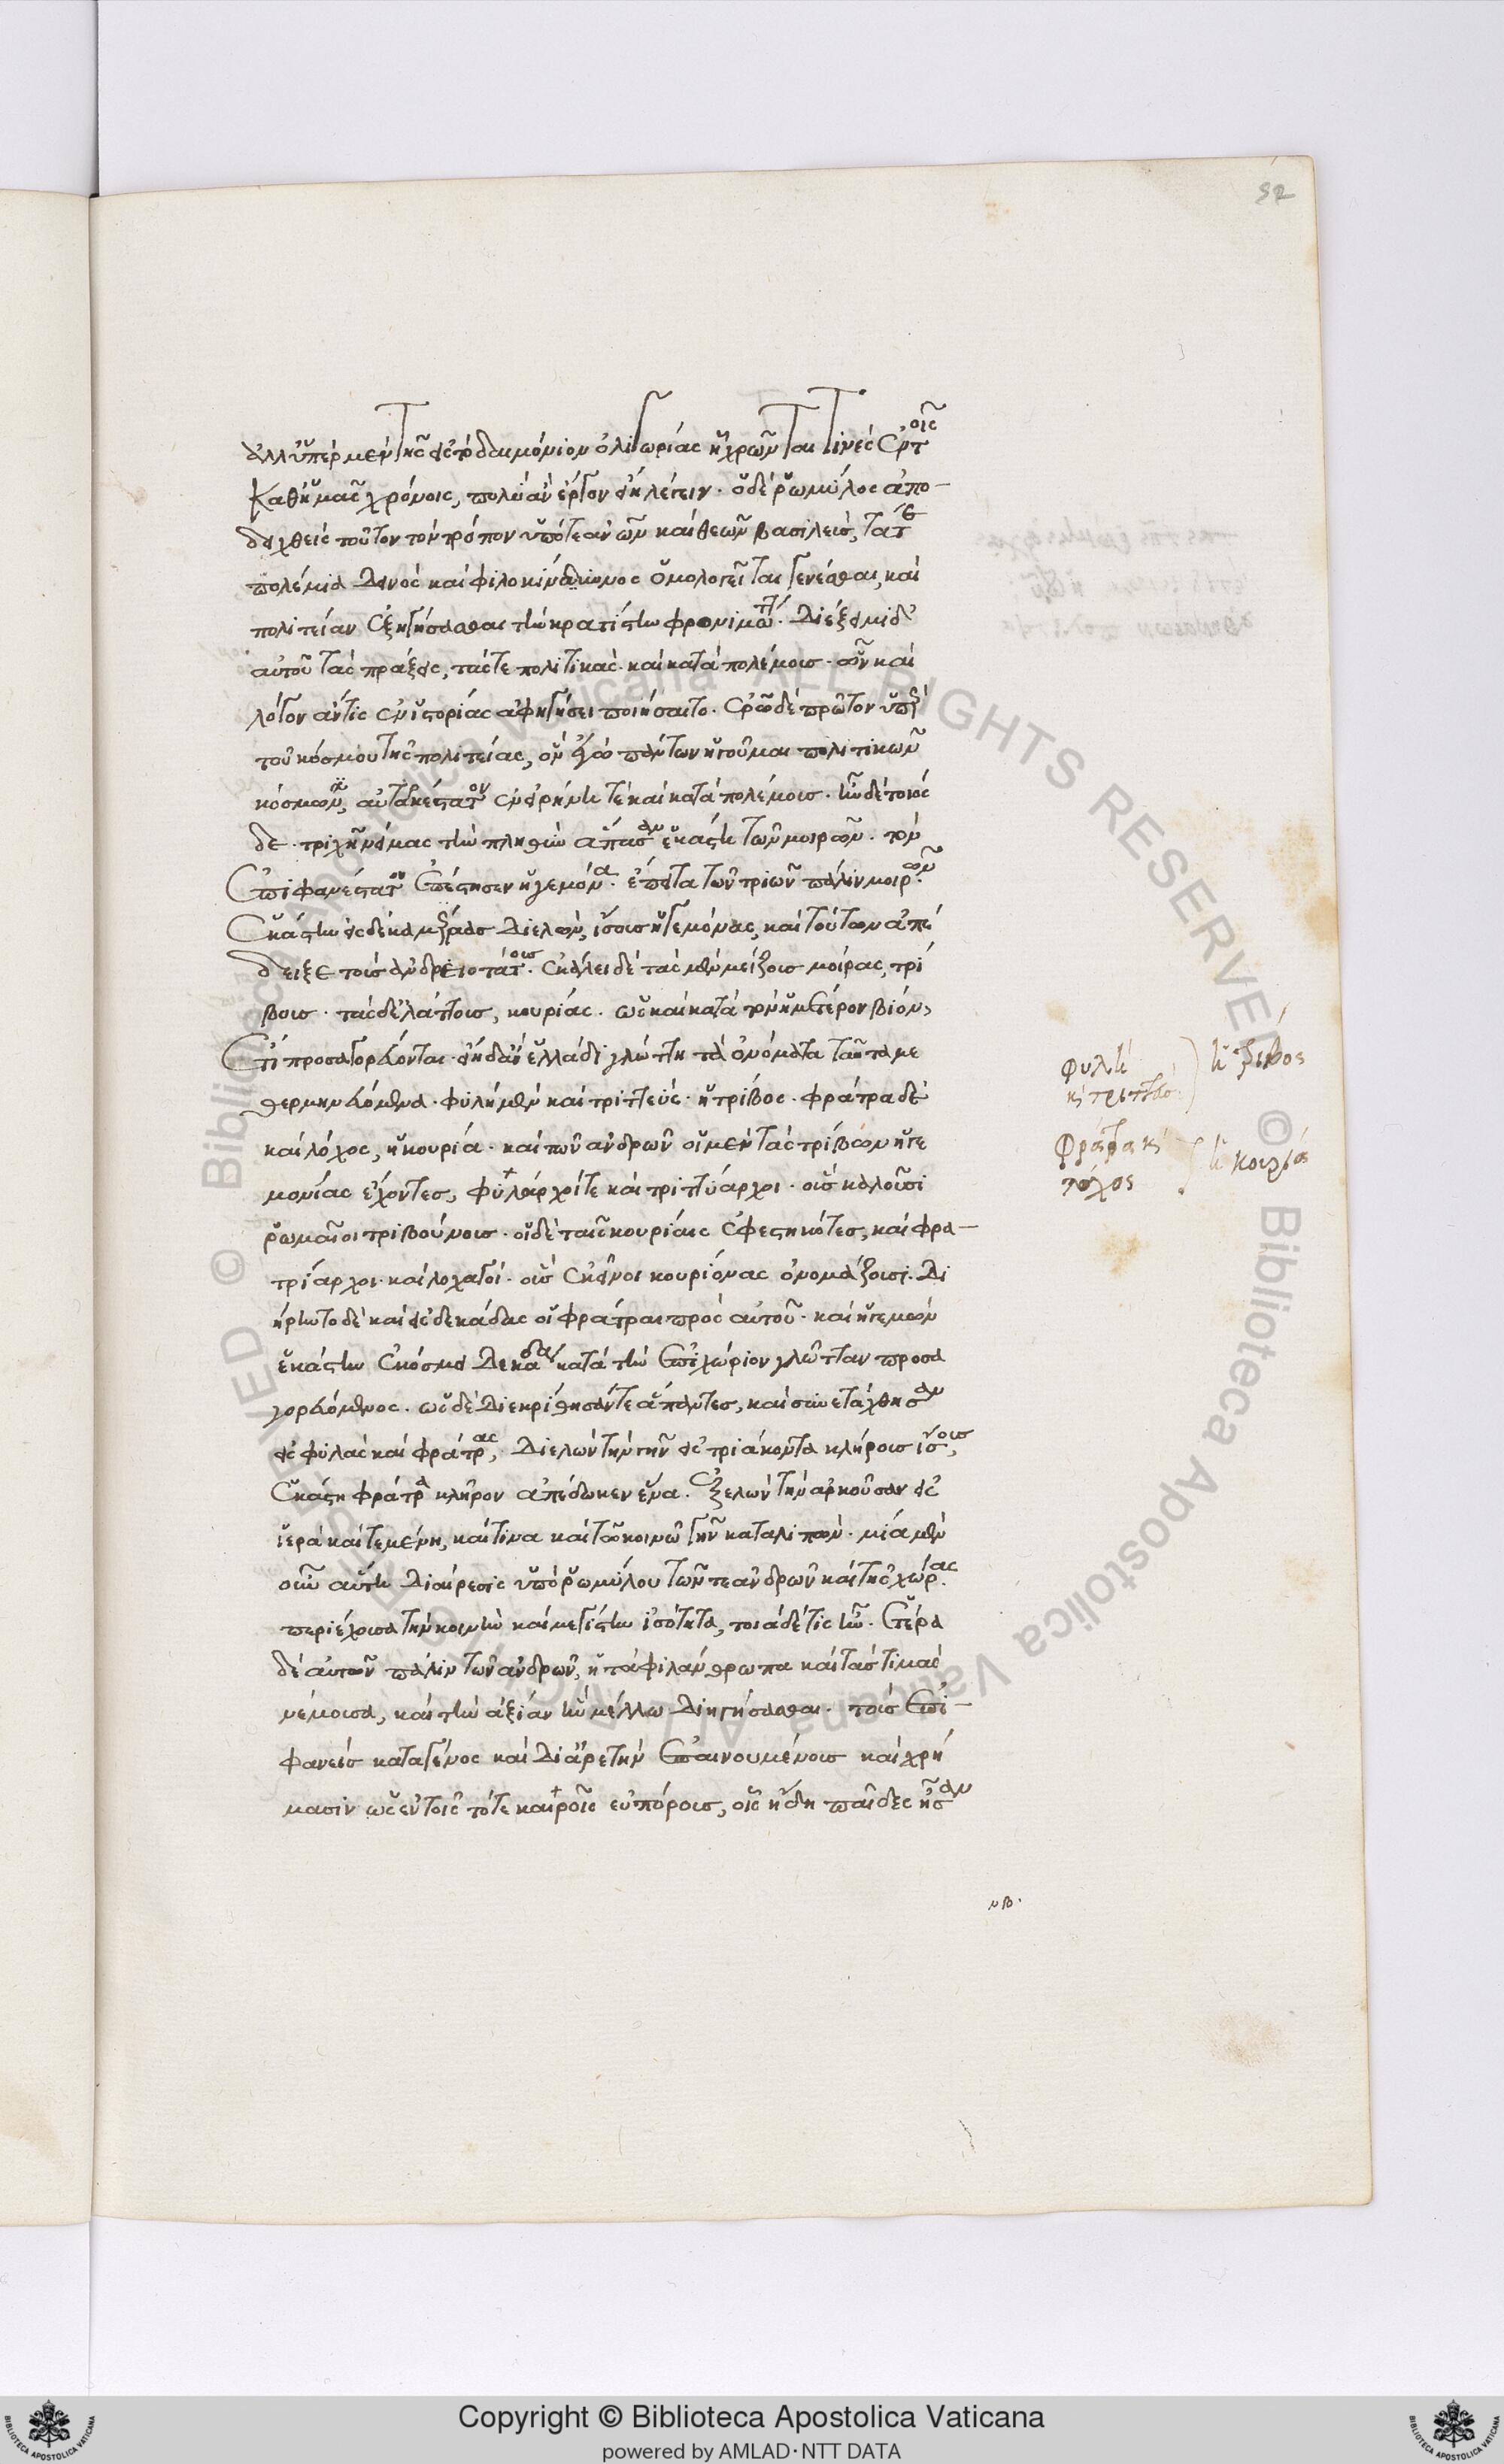 52
ἀλλ' ὑπὲρ μὲν τῆς εἰς τὸ δαιμόνιον ὀλιγωρίας ᾗ χρῶνται τινὲς ἐν τοῖς
καθ' ἡμᾶς χρόνοις, πολὺ ἂν ἔργον εἴη λέγειν. ὁ δὲ ῥωμύλος ἀπο-
δειχθεὶς τοῦτον τὸν τρόπον ὑπό τε ἀνῶν καὶ θεῶν βασιλεὺς, τά τε
πολέμια δεινὸς καὶ φιλοκίνδυνος ὁμολογεῖται γενέσθαι, καὶ
πολιτείαν ἐξηγήσασθαι τὴν κρατίστην φρονιμώτ. διέξειμι δ'
αὐτοῦ τὰς πράξεις, τάς τε πολιτικὰς καὶ κατὰ πολέμους. ὧν καὶ
λόγον ἄν τις ἐν ἱστορίας ἀφηγήσει ποιήσαιτο. ἐρῶ δὲ πρῶτον ὑπὲρ
τοῦ κόσμου τῆς πολιτείας, ὃν ἐγὼ πάντων ἡγοῦμαι πολιτικῶν
κόσμων, αὐταρκέστατον ἐν εἰρήνῃ τὲ καὶ κατὰ πολέμους. ἦν δὲ τοιός
δε. τριχῇ νείμας τὴν πληθὺν ἅπασαν ἑκάστῃ τῶν μοιρῶν. τὸν
ἐπιφανέστατον ἐπέστησεν ἡγεμόνα. ἔπειτα τῶν τριῶν πάλιν μοιρῶν.
ἑκάστην εἰς δέκα μοίρας διελὼν, ἴσους ἡγεμόνας, καὶ τούτων ἀπέ
δειξε τοὺς ἀνδρειοτάτους. ἐκάλει δὲ τὰς μὲν μείζους μοίρας, τρί
βους. τὰς δ' ἐλάττους, κουρίας. ὡς καὶ κατὰ τὸν ἡμέτερον βίον,
ἔτι προσαγορεύονται. εἴη δ' ἂν ἑλλάδι γλώττῃ τὰ ὀνόματα ταῦτα με
θερμηνευόμενα. φυλὴ μὲν καὶ τριττὺς. ἡ τρίβος. φράτρα δὲ
καὶ λόχος, ἡ κουρία. καὶ τῶν ἀνδρῶν οἱ μὲν τὰς τρίβων ἡγε
μονίας ἔχοντες, φύλαρχοί τε καὶ τριττύαρχοι. οὓς καλοῦσι
ῥωμαῖοι τριβούνους. οἱ δὲ ταῖς κουρίαις ἐφεστηκότες, καὶ φρα-
τρίαρχοι καὶ λοχαγοί. οὓς ἐκεῖνοι κουρίονας ὀνομάζουσι. δι
ῄρηντο δὲ καὶ εἰς δεκάδας αἱ φράτραι πρὸς αὐτοῦ. καὶ ἡγεμὼν
ἑκάστην ἐκόσμει δεκάδα κατὰ τὴν ἐπιχώριον γλῶτταν προσα
γορευόμενος. ὡς δὲ διεκρίθησάν τε ἅπαντες, καὶ συνετάχθησαν
εἰς φυλὰς καὶ φράτρας, διελὼν τὴν γῆν εἰς τριάκοντα κλήρους ἴσους,
ἑκάστῃ φράτρᾳ κλῆρον ἀπέδωκεν ἕνα. ἐξελὼν τὴν ἀρκοῦσαν εἰς
ἱερὰ καὶ τεμένη, καί τινα καὶ τῷ κοινῷ γῆν καταλιπών. μία μὲν
οὖν αὕτη διαίρεσις ὑπὸ ῥωμύλου τῶν τε ἀνδρῶν καὶ τῆς χώρας.
περιέχουσα τὴν κοινὴν καὶ μεγίστην ἰσότητα, τοιάδε τις ἦν. ἑτέρα
δὲ αὐτῶν πάλιν τῶν ἀνδρῶν, ἡ τὰ φιλάνθρωπα καὶ τὰς τιμὰς
νέμουσα, κατὰ τὴν ἀξίαν ἣν μέλλω διηγήσασθαι. τοὺς ἐπι-
φανεῖς κατὰ γένος καὶ δι' ἀρετὴν ἐπαινουμένους καὶ χρή
μασιν ὡς ἐν τοῖς τότε καιροῖς εὐπόρους, οἷς ἤδη παῖδες ἦσαν
φυλὴ
κ' τριττὺς
ἡ τρίβος
φράτρα κ'
λόχος
ἡ κουρία
νβ.
Copyright © Biblioteca Apostolica Vaticana
powered by AMLAD·NTT DATA